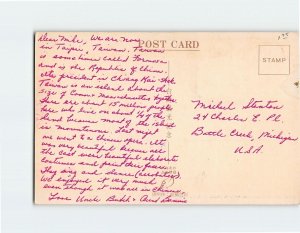 Dear Mike, We are now
in Taipei, Taiwan. Taiwan
is sometimes called Formosa
and is the Republic of China.
The president is Chiang Kai Shek
Taiwan is an island about the
size of Conn. & Massachusetts together
There are about 15 million people
here who live on about 1/3 of the
land because most of the island
is mountainous. Last night
we went to a Chinese opera. It
was very beautiful because all
the costumes were beautiful elaborate
costumes and paint their faces.
They sing and dance (acrobatics)
We enjoyed it very much
even though it was all in Chinese
Love Uncle Bubb & Aunt
POST CARD
STAMP
Michael Stanton
24 Charles Ct. Pl.
Battle Creek, Michigan
U.S.A.